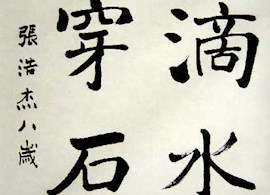 滴水
穿石
張浩杰八歲